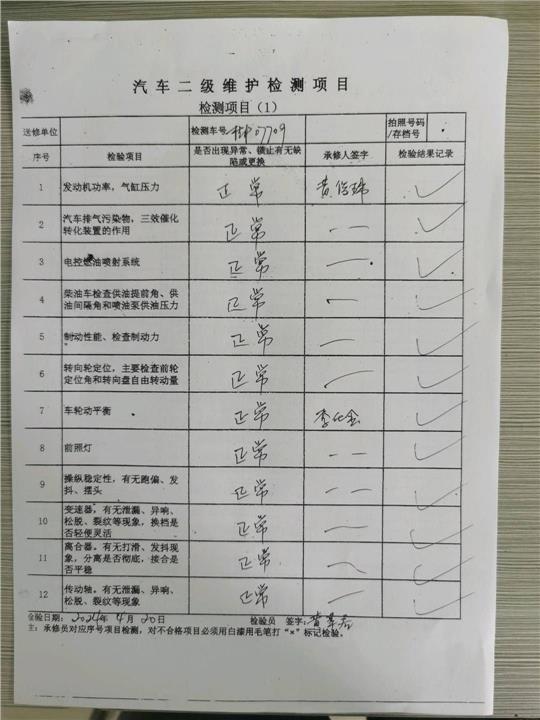 汽车二级维护检测项目
检测项目（1）
送修单位 检测车号 07709 拍照号码/存档号
序号 检验项目 是否出现异常、锁止有无缺陷或更换 承修人签字 检验结果记录
1 发动机功率，气缸压力 正常 ✓
2 汽车排气污染物，三效催化转化装置的作用 正常 一一 ✓
3 电控燃油喷射系统 正常 一 ✓
4 柴油车检查供油提前角、供油间隔角和喷油泵供油压力 正常 一 ✓
5 制动性能、检查制动力 正常 一 ✓
6 转向轮定位，主要检查前轮定位角和转向盘自由转动量 正常 一 ✓
7 车轮动平衡 正常 ✓
8 前照灯 正常 一一 ✓
9 操纵稳定性，有无跑偏、发抖、摆头 正常 一一 ✓
10 变速器。有无泄漏、异响、松脱、裂纹等现象，换档是否轻便灵活 正常 一 ✓
11 离合器。有无打滑、发抖现象，分离是否彻底，接合是否平稳 正常 一 ✓
12 传动轴。有无泄漏、异响、松脱、裂纹等现象 正常 一 ✓
检验日期：2024年4月20日 检验员 签字：
注：承修员对应序号项目检测，对不合格项目必须用白漆用毛笔打“×”标记检验。